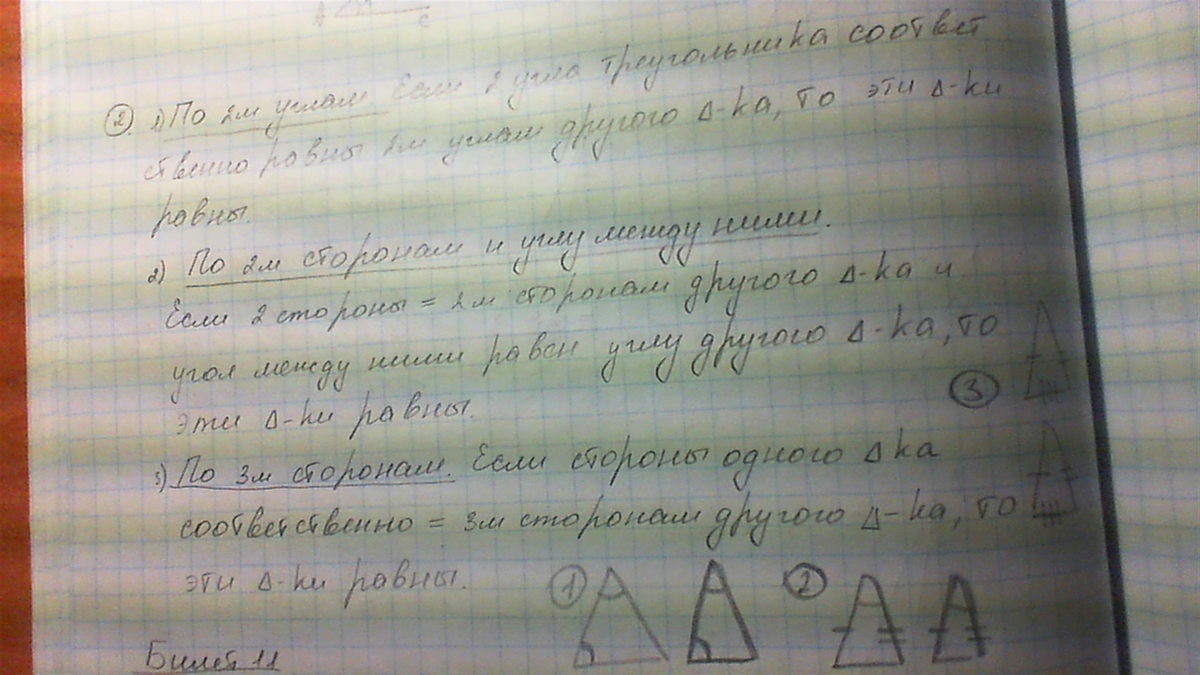 A c
② 1) По 2м углам Если 2 угла треугольника соответ
ственно равны 2м углам другого Δ-ка, то эти Δ-ки
равны.
2) По 2м сторонам и углу между ними.
Если 2 стороны = 2м сторонам другого Δ-ка и
угол между ними равен углу другого Δ-ка, то
эти Δ-ки равны.
③
3) По 3м сторонам. Если стороны одного Δка
соответственно = 3м сторонам другого Δ-ка, то
эти Δ-ки равны.
① ②
Билет 11